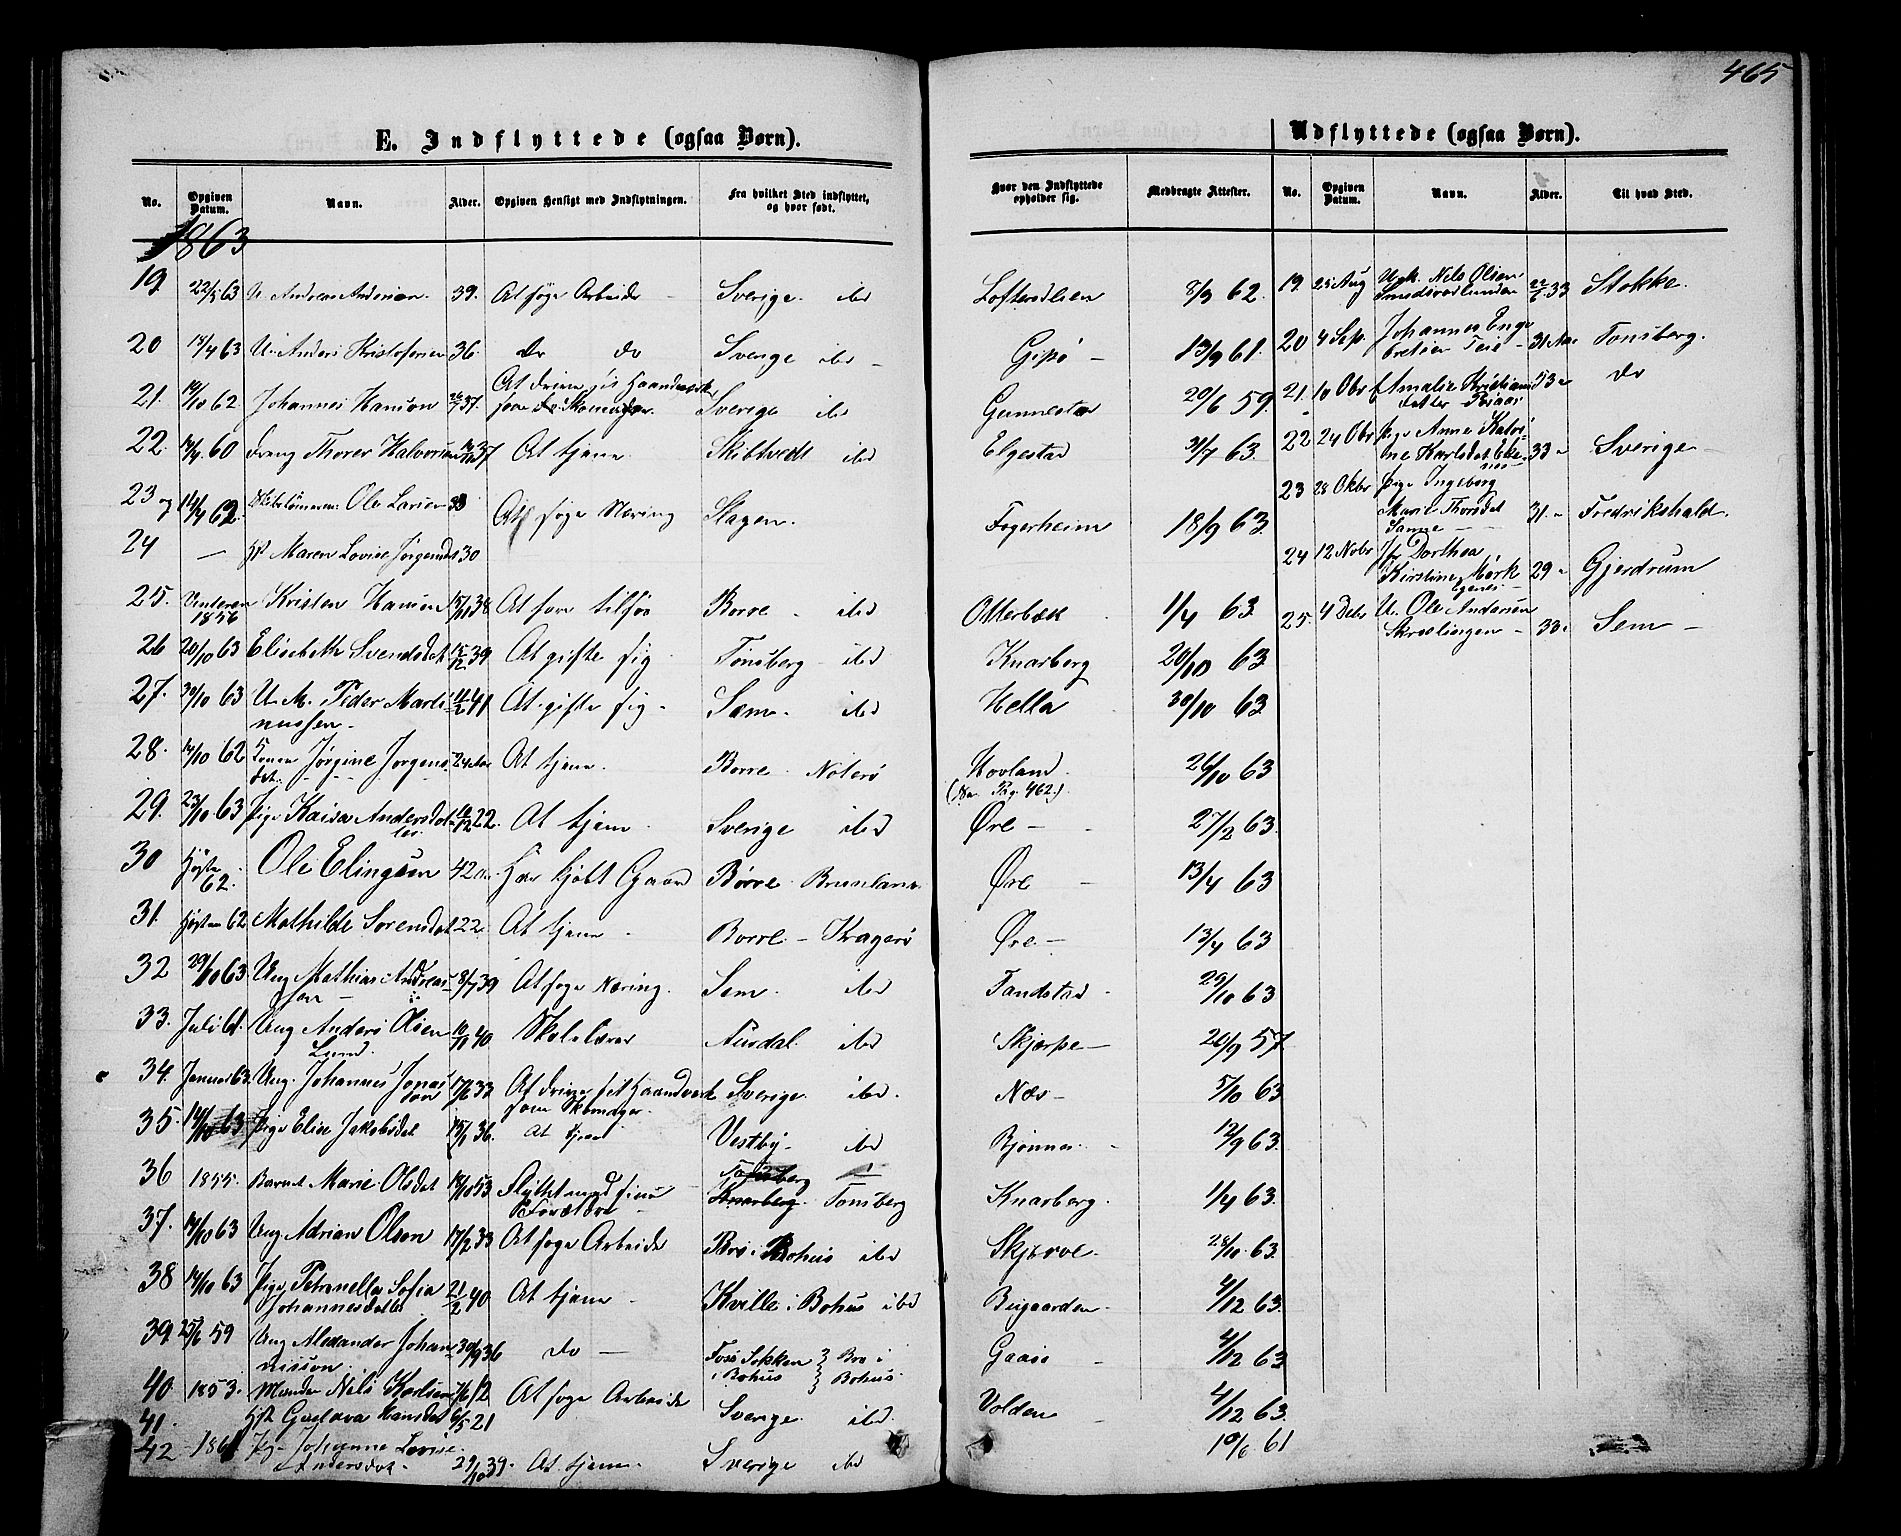 465
E. Indflyttede (ogsaa Børn).
No. Opgiven Datum. Navn. Alder. Opgiven Hensigt med Indflytningen. Fra hvilket Sted indflyttet, og hvor født. Hvor den Indflyttede opholder sig. Medbragte Attester.
1863
19. 22/5 63 U. Andreas Andersson. 39. At søge Arbeide Sverige. ibd 8/3 62.
20 13/4 63 U. Anders Kristofersen 36. do do Sverige ibd Gipø 13/9 61.
21. 14/10 62. Johannes Hanson 37. At drive sit Haandværk som Skomager. Sverige ibd Gunnestad 20/6 59.
22. 14/4 60 Dreng Thorer Halvorsen 37 At tjene Skibtvedt ibd Elgestad 31/7 63.
23 og 14/4 62. Ole Larsen 33 At søge Næring Slagen. Fogerheim 18/9 63.
24 — Hst Maren Lovise Jørgensdt 30
25. Vinteren 1856 Kristen Hanson 15/11 38. At fare tilsøs Borre ibd Otterbæk 1/4 63.
26 20/10 63 Elisabeth Svendsdat. 15/12 39 At gifte sig Tønsberg ibd Knarberg 20/10 63
27. 30/10 63 U. M. Peder Martinussen 41 At gifte sig. Sæm. ibd Hella 30/10 63.
28. 14/10 62 Jørgine Jørgensdat. 24 Aar At tjene. Borre Nøterø Hovland. (Pag. 462.) 26/10 63
29. 23/10 63 Pige Kaisa Andersdatter 22. At tjene. Sverige ibd Øre 27/2 63.
30 Høsten 62. Ole Elingsen 42 Har kjøbt Gaard Børre Brunlanæs Øre 13/4 63
31. Høsten 62 Mathilde Sorensdat 22. At tjene Borre Kragerø Øre 13/4 63
32 29/10 63. Ung. Mathias Andreassen 8/7 39 At søge Næring. Sem. ibd Tandstad 29/10 63
33. Juli 61. Ung Anders Olsen Lund. 10/11 40 Skolelærer Aurdal. ibd Skjerpe 26/9 57.
34. Januar 63. Ung. Johannes Jonasson 17/6 33 At drive sit Haandverk som Skomager. Sverige. ibd. Næs 5/10 63
35. 14/10 63 Pige Elise Jakobsdat 15/1 36. At tjene Vestby ibd Bjønnes 12/9 63.
36 1855. Barnet Marie Olsdat 18/10 53 Flyttet med sine Forældre Tønsberg Knarberg Tønsberg Knarberg. 1/4 63.
37. 14/10 63 Ung. Adrian Olson 17/2 33 At søge Arbeide Bro i Bohus ibd Skjerve 28/10 63.
38 14/10 63 Pige Petronella Sofia Johannesdatter 21/2 40 At tjene Kville i Bohus ibd Bugaarden 4/12 63.
39. 25/6 59 Ung Alexander Johannesson. 30/9 36 do Foss Sokken i Bohus Bro i Bohus. Gaasø 4/12 63
40. 1853. Mander Nils Karlsen 7/6 12 At søge Arbeide Sverige ibd. Volden 4/12 63.
41. Hst Gustava Hansdat 6/5 21
42 186 Pige Johanne Lovise Andersdat. 29/10 39. At tjene Sverige ibd 10/6 61
Udflyttede (ogsaa Børn).
No. Opgiven Datum. Navn. Alder. Til hvad Sted.
19. 25 Aug Ungk. Nils Olsen 33 Stokke.
20 4 Sep. Johannes Engebretsen Teie 31 Aar Tønsberg.
21. 10 Obr Amalie Kristiansdatter 53 do
22 24 Obr Pige Anne Karlsdat 33 Sverige
23 28 Oktbr Pige Ingeborg Marie Thorsdat Sanne 31 Fredrikshald.
24 12 Novbr Dorthea Kirstine 29 Gjerdrum
25. 4 Debr U. Ole Andersen Skrælingen 33 Sem